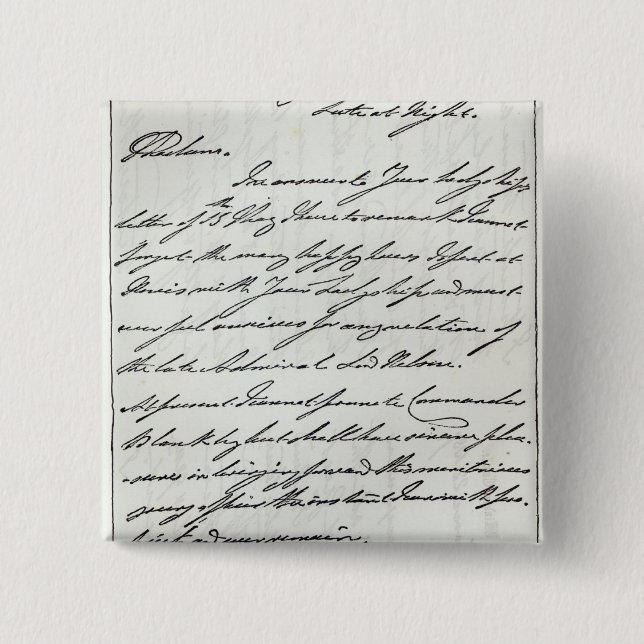 Late at Night.
Madam.
In answer to Your Ladyships
letter of 15th May I have to remark I cannot
forget the many happy hours I spent at
with Your Ladyship and must
ever feel anxious for any relation of
the late Admiral Lord Nelson.
At present I cannot promote Commander
Blankley but shall have sincere plea
-sure in bringing forward this meritorious
young officer the instant I can with pro
and ever remain